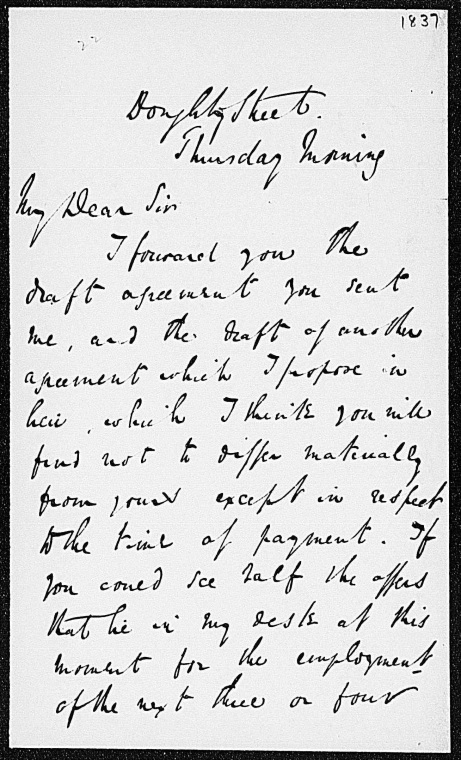 1837
Doughty Street.
Thursday Morning
My Dear Sir
I forward you the
draft agreement you sent
me, and the draft of another
agreement which I propose in
lieu, which I think you will
find not to differ materially
from yours except in respect
to the time of payment. If
you could see half the offers
that lie in my desk at this
moment for the employment
of the next three or four